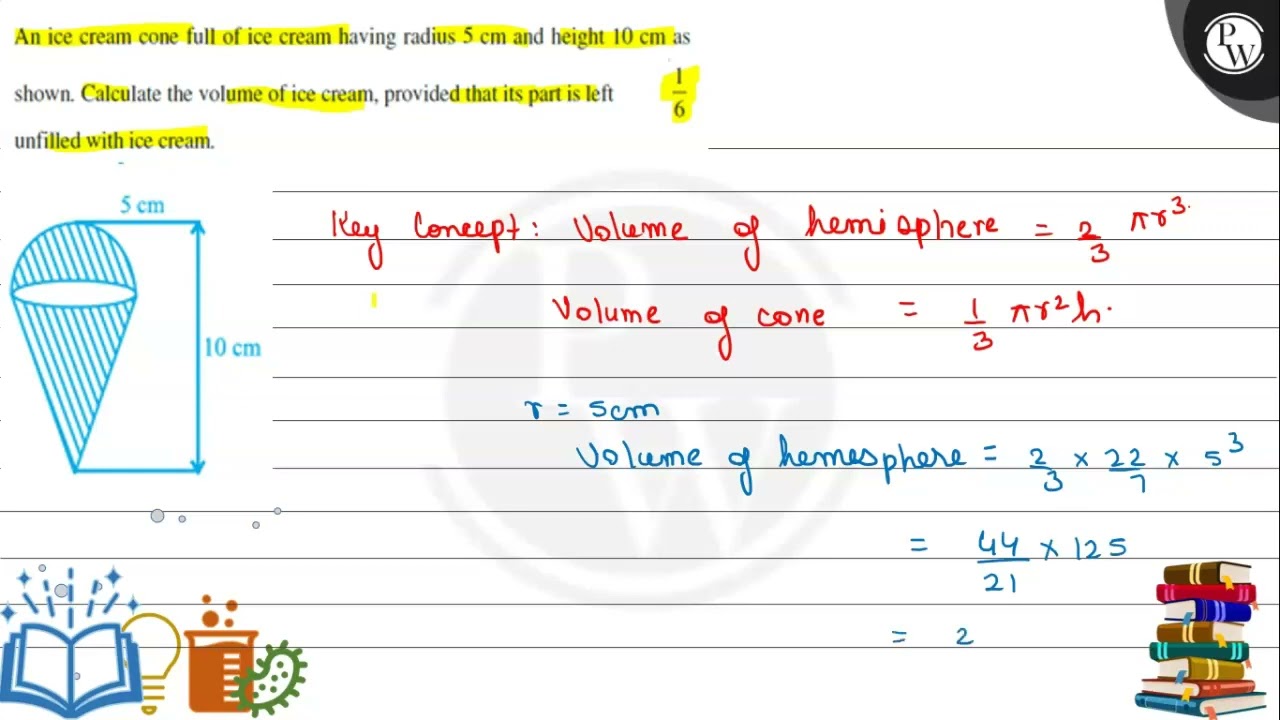 An ice cream cone full of ice cream having radius 5 cm and height 10 cm as
shown. Calculate the volume of ice cream, provided that its part is left 1/6
unfilled with ice cream.
PW
5 cm
10 cm
Key Concept: Volume of hemisphere = 2/3 πr³.
Volume of cone = 1/3 πr²h.
r = 5cm
Volume of hemesphere = 2/3 × 22/7 × 5³
= 44/21 × 125
= 2